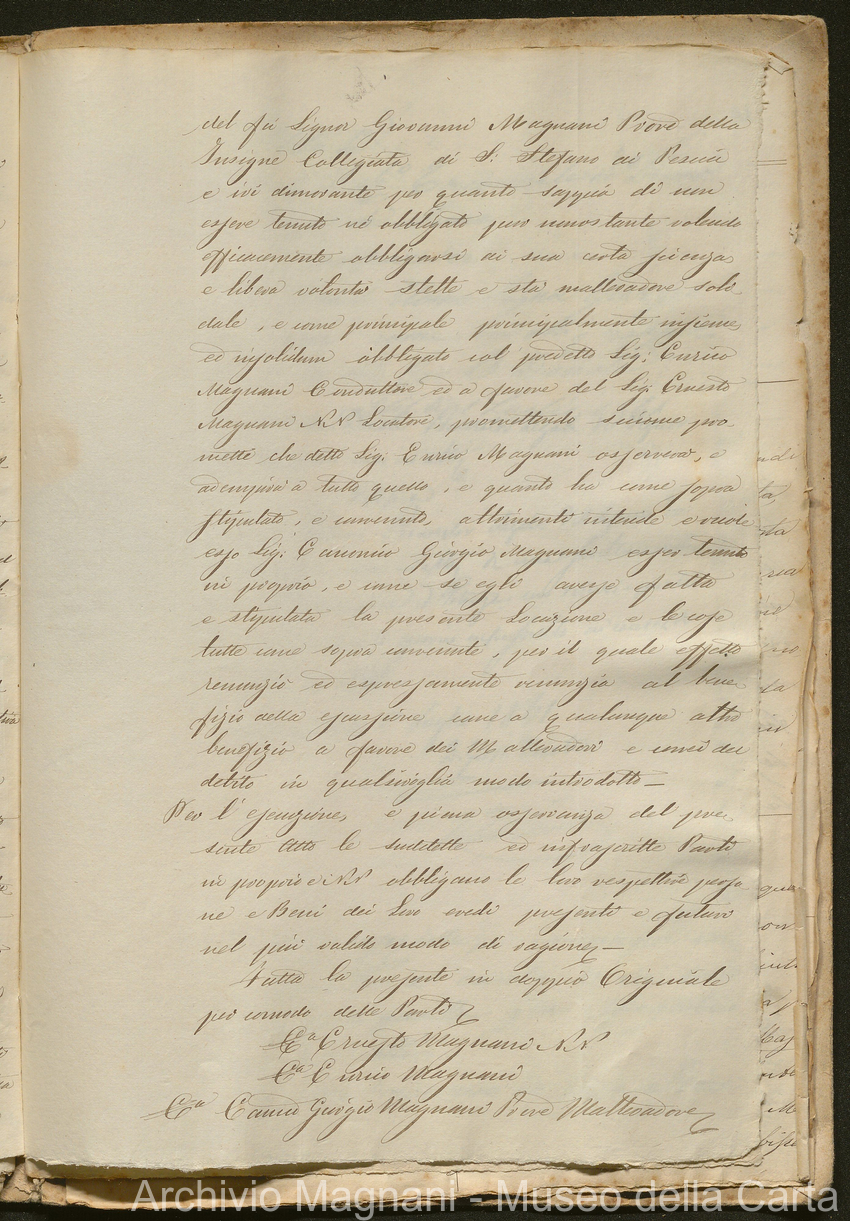 del fu Signor Giovanni Magnani Provè della
Insigne Collegiata di S: Stefano di Pescia
e ivi dimorante per quanto sappia di non
essere tenuto nè obbligato pur nonostante volendo
efficacemente obbligarsi di sua certa scienza,
e libera volontà stette e stà mallevadore soli-
dale, e come principale principalmente insieme,
ed insolidum obbligato col predetto Sig: Enrico
Magnani Conduttore ed a favore del Sig: Ernesto
Magnani NN Locatore, promettendo siccome pro-
mette che detto Sig: Enrico Magnani osserverà, e
adempirà a tutto quello, e quanto ha come sopra
stipulato, e convenuto, altrimenti intende e vuole
esso Sig: Canonico Giorgio Magnani esser tenuto
in proprio, e come se egli avesse fatta
e stipulata la presente Locazione e le cose
tutte come sopra convenute, per il quale effetto
renunziò ed espressamente renunzia al bene-
fizio della escussione come a qualunque altro
benefizio a favore dei Mallevadori e
debito in qualsivoglia modo introdotto —
Per l'esecuzione, e piena osservanza del pre-
sente Atto le suddette ed infrascritte Parti
in proprio e NN obbligano le loro respettive perso
ne e Beni dei Loro eredi presenti e futuri
nel più valido modo di ragione —
Fatta la presente in doppio Originale
per comodo delle Parti
Ernesto Magnani NN
Enrico Magnani
Canco Giorgio Magnani Provè Mallevadore
Archivio Magnani - Museo della Carta